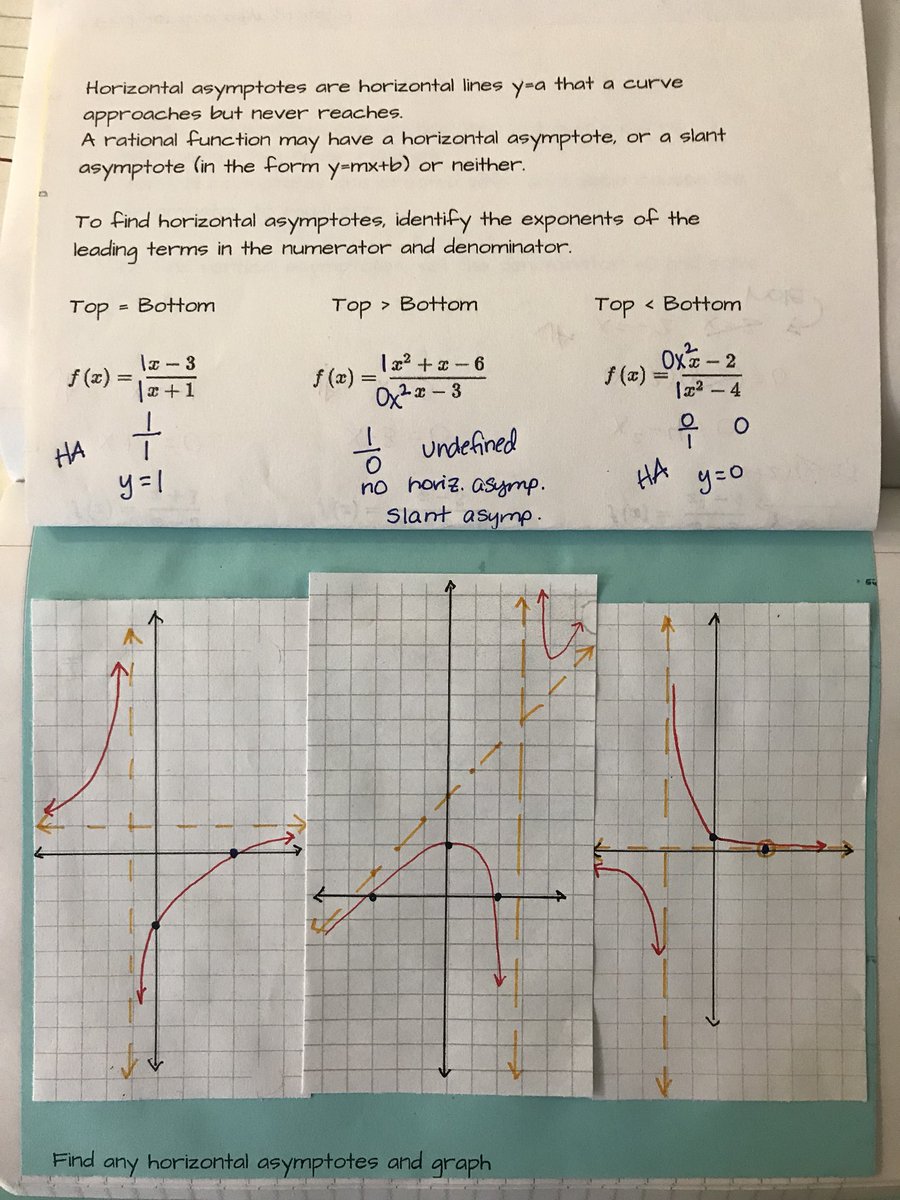 Horizontal asymptotes are horizontal lines y=a that a curve
approaches but never reaches.
A rational function may have a horizontal asymptote, or a slant
asymptote (in the form y=mx+b) or neither.
To find horizontal asymptotes, identify the exponents of the
leading terms in the numerator and denominator.
Top = Bottom
f(x) = (1x − 3)/(1x + 1)
1/1
HA
y=1
Top > Bottom
f(x) = (1x² + x − 6)/(0x² x − 3)
1/0 undefined
no horiz. asymp.
slant asymp.
Top < Bottom
f(x) = (0x² x − 2)/(1x² − 4)
0/1 0
HA y=0
Find any horizontal asymptotes and graph